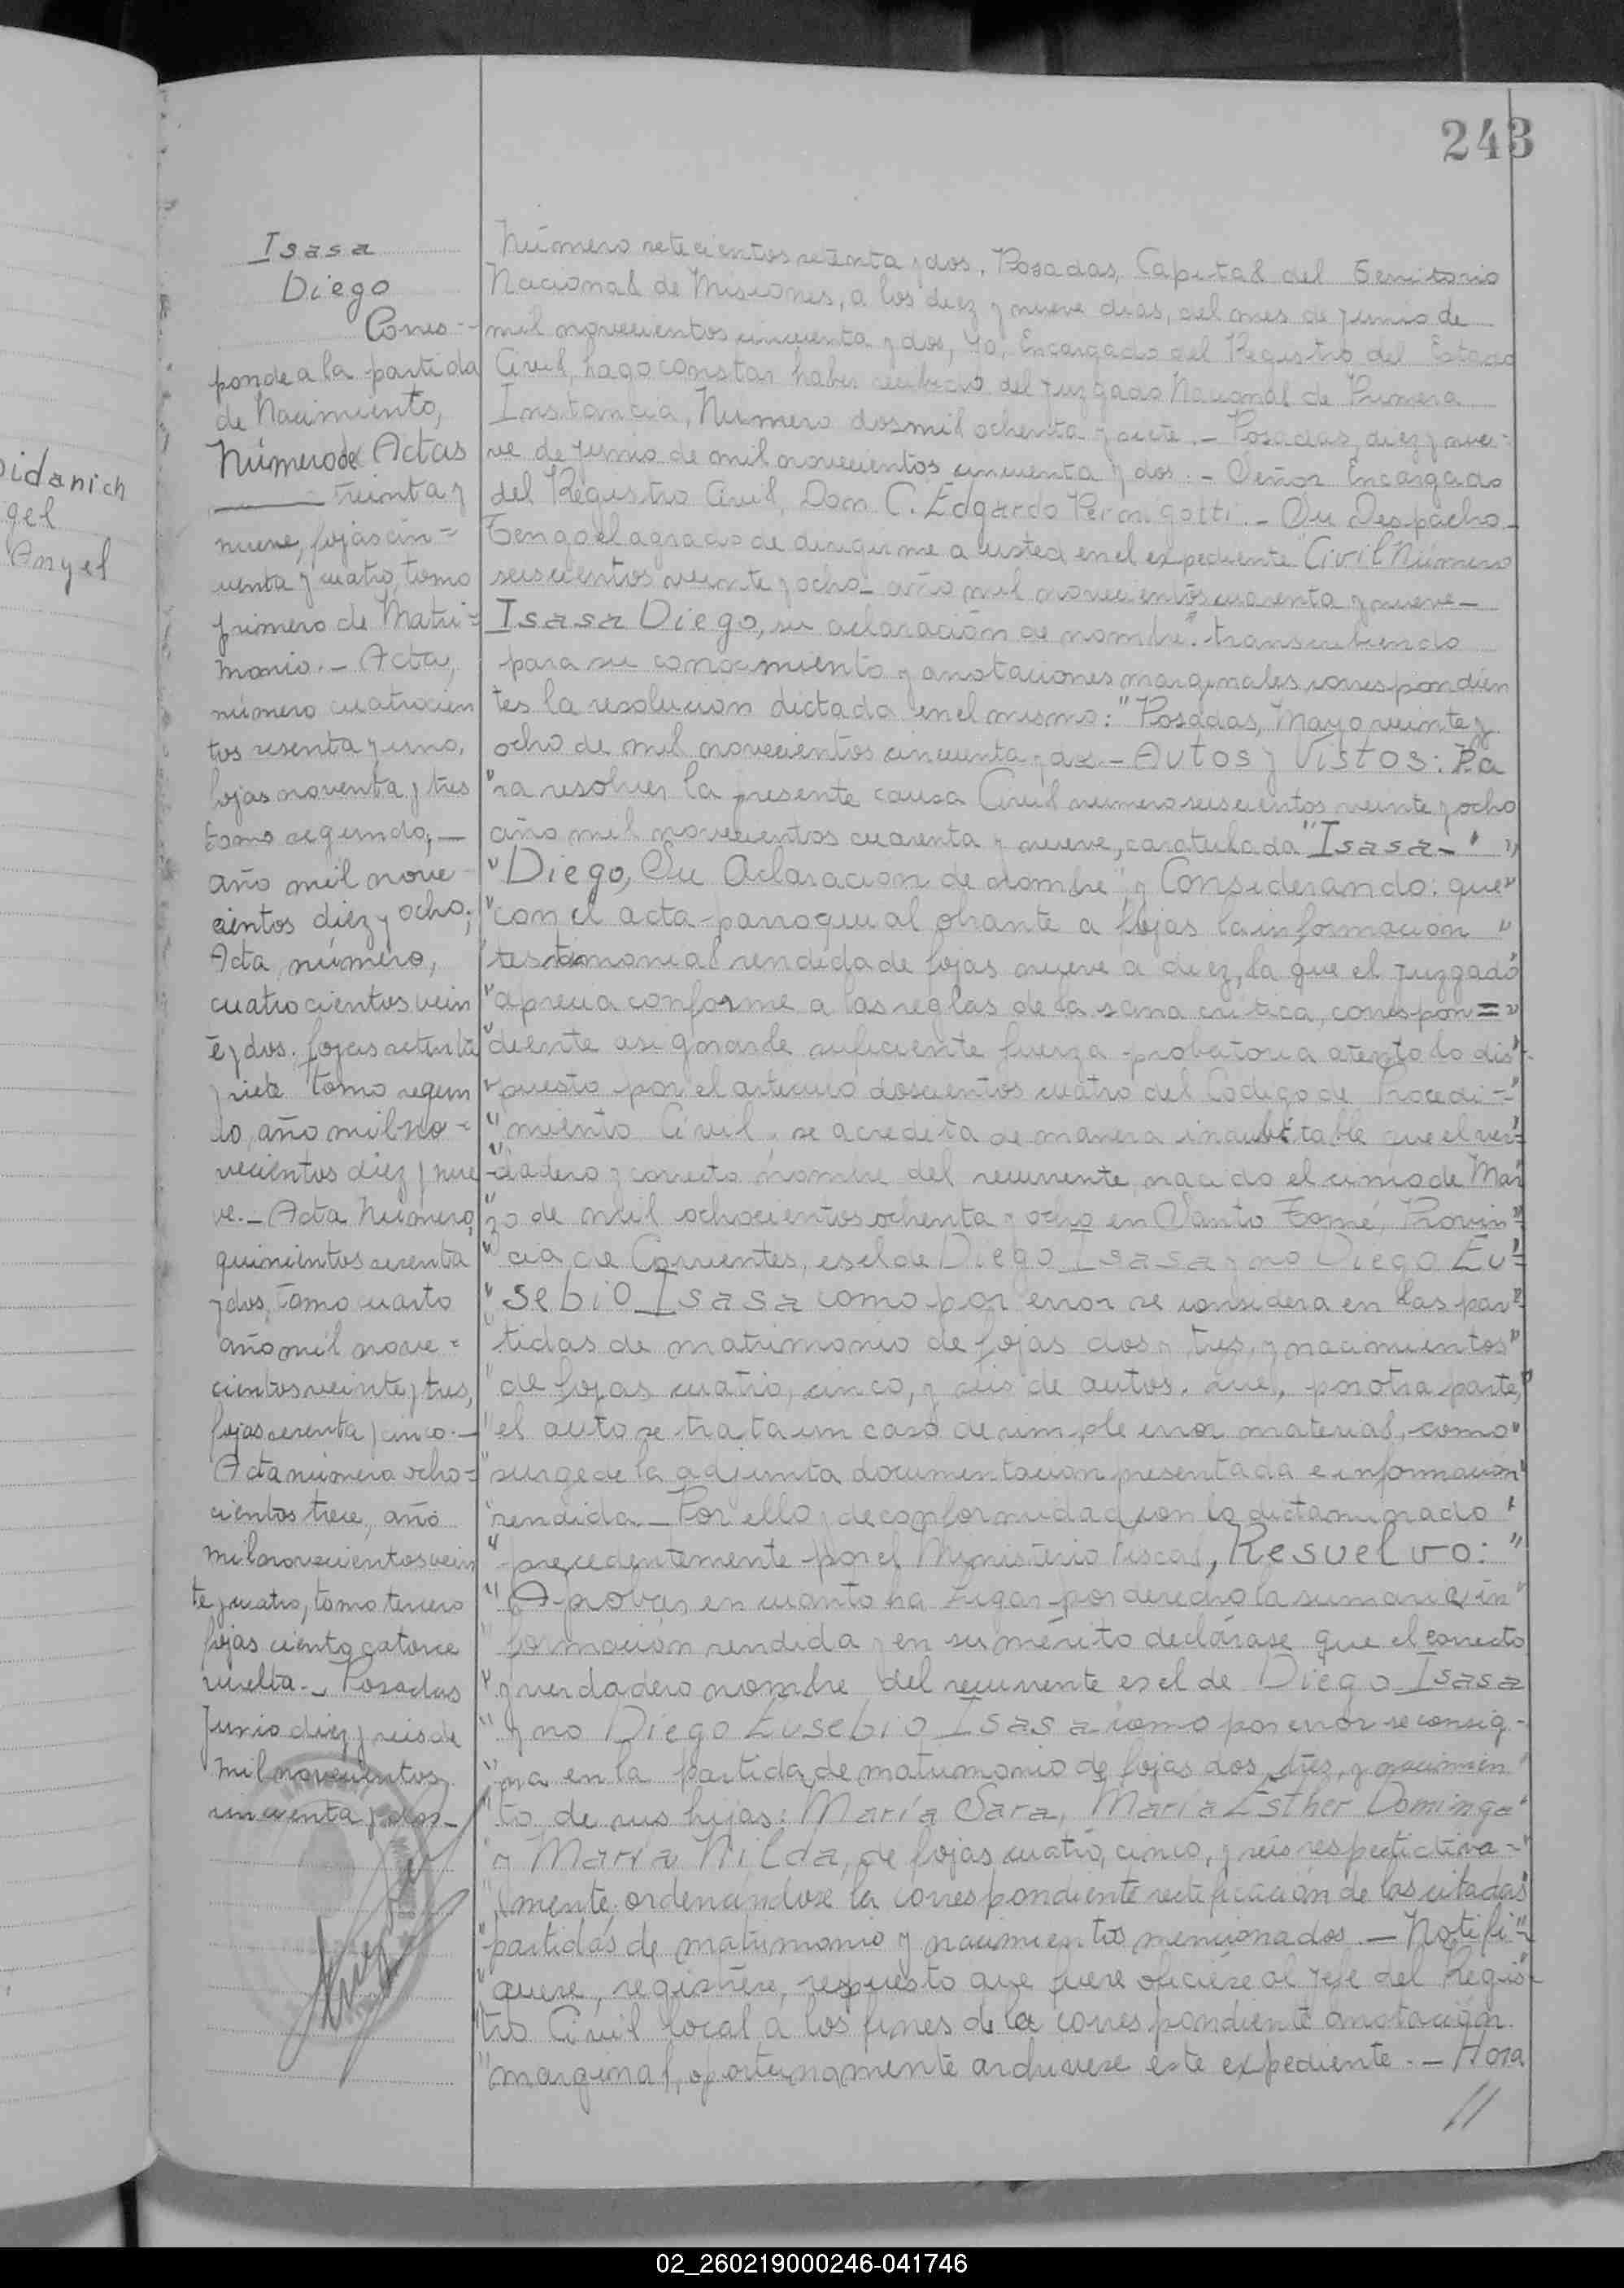 243
Isasa
Diego
Corres-
ponde a la partida
de Nacimiento,
Número de Actas
treinta y
nueve, fojas cin=
cuenta y cuatro, tomo
primero de Matri=
monio.- Acta,
número cuatrocien
tos sesenta y uno,
fojas noventa y tres
tomo segundo,-
año mil nove
cientos diez y ocho;
Acta, número,
cuatrocientos vein
te y dos, fojas setenta
y siete tomo segun
do, año mil no=
vecientos diez y nue
ve.- Acta Número,
quinientos sesenta
y dos, tomo cuarto
año mil nove=
cientos veinte y tres,
fojas sesenta y cinco.-
Acta número ocho=
cientos trece, año
mil novecientos vein
te y cuatro, tomo tercero
fojas ciento catorce
vuelta.- Posadas
Junio diez y seis de
mil novecientos
cincuenta y dos.-
Número setecientos setenta y dos. Posadas, Capital del Territorio
Nacional de Misiones, a los diez y nueve dias, del mes de junio de
mil novecientos cincuenta y dos, Yo, Encargado del Registro del Estado
Civil, hago constar haber recibido del Juzgado Nacional de Primera
Instancia, Número dos mil ochenta y siete.- Posadas, diez y nue=
ve de junio de mil novecientos cincuenta y dos.- Señor Encargado
del Registro Civil, Don C. Edgardo Permigotti.- Su Despacho.-
Tengo el agrado de dirigirme a usted en el expediente "Civil Número
seiscientos veinte y ocho- año mil novecientos cuarenta y nueve-
Isasa Diego, su aclaración de nombre". transcribiendo
para su conocimiento y anotaciones marginales correspondien
tes la resolucion dictada en el mismo: "Posadas, Mayo veinte y
ocho de mil novecientos cincuenta y dos - Autos y Vistos: Pa
"ra resolver la presente causa Civil número seiscientos veinte y ocho
año mil novecientos cuarenta y nueve, caratulada "Isasa-"
"Diego, Su Aclaracion de nombre" y Considerando: que"
"con el acta parroquial obrante a fojas la informacion "
testimonial rendida de fojas nueve a diez, la que el juzgado
"aprecia conforme a las reglas de la sana critica, correspon="
"diente asignarle suficiente fuerza probatoria atento lo dis"
"puesto por el articulo doscientos cuatro del Codigo de Procedi-"
"miento Civil, se acredita de manera indubitable que el ver=
"dadero y correcto nombre del recurrente nacido el cinco de Mar
"zo de mil ochocientos ochenta y ocho en Santo Tomé, Provin"
"cia de Corrientes, es el de Diego Isasa y no Diego Eu"
"sebio Isasa como por error se considera en las par"
"tidas de matrimonio de fojas dos y tres, y nacimientos"
"de fojas cuatro, cinco, y seis de autos. Que, por otra parte,"
"el auto se trata un caso de simple error material, como"
"surge de la adjunta documentacion presentada e informacion"
"rendida.- Por ello y de conformidad con lo dictaminado "
"precedentemente por el Ministerio Fiscal, Resuelvo: "
"Aprobar en cuanto ha lugar por derecho la sumaria in"
"formación rendida y en su mérito declárase que el correcto
"y verdadero nombre del recurrente es el de Diego Isasa
"y no Diego Eusebio Isasa como por error se consig-
"na en la partida de matrimonio de fojas dos, tres, y nacimien"
"to de sus hijas: María Sara, María Esther Dominga"
"y María Nilda, de fojas cuatro, cinco, y seis respectictiva-"
"mente, ordenándose la correspondiente rectificación de las citadas"
"partidas de matrimonio y nacimientos mencionados.- Notifi"
"quese, registrese, respuesto que fuere oficiese al Jefe del Regis-
"tro Civil local a los fines de la correspondiente anotación
"marginal, oportunamente archivese este expediente.- Hora
//
gel
Anyel
02_260219000246-041746